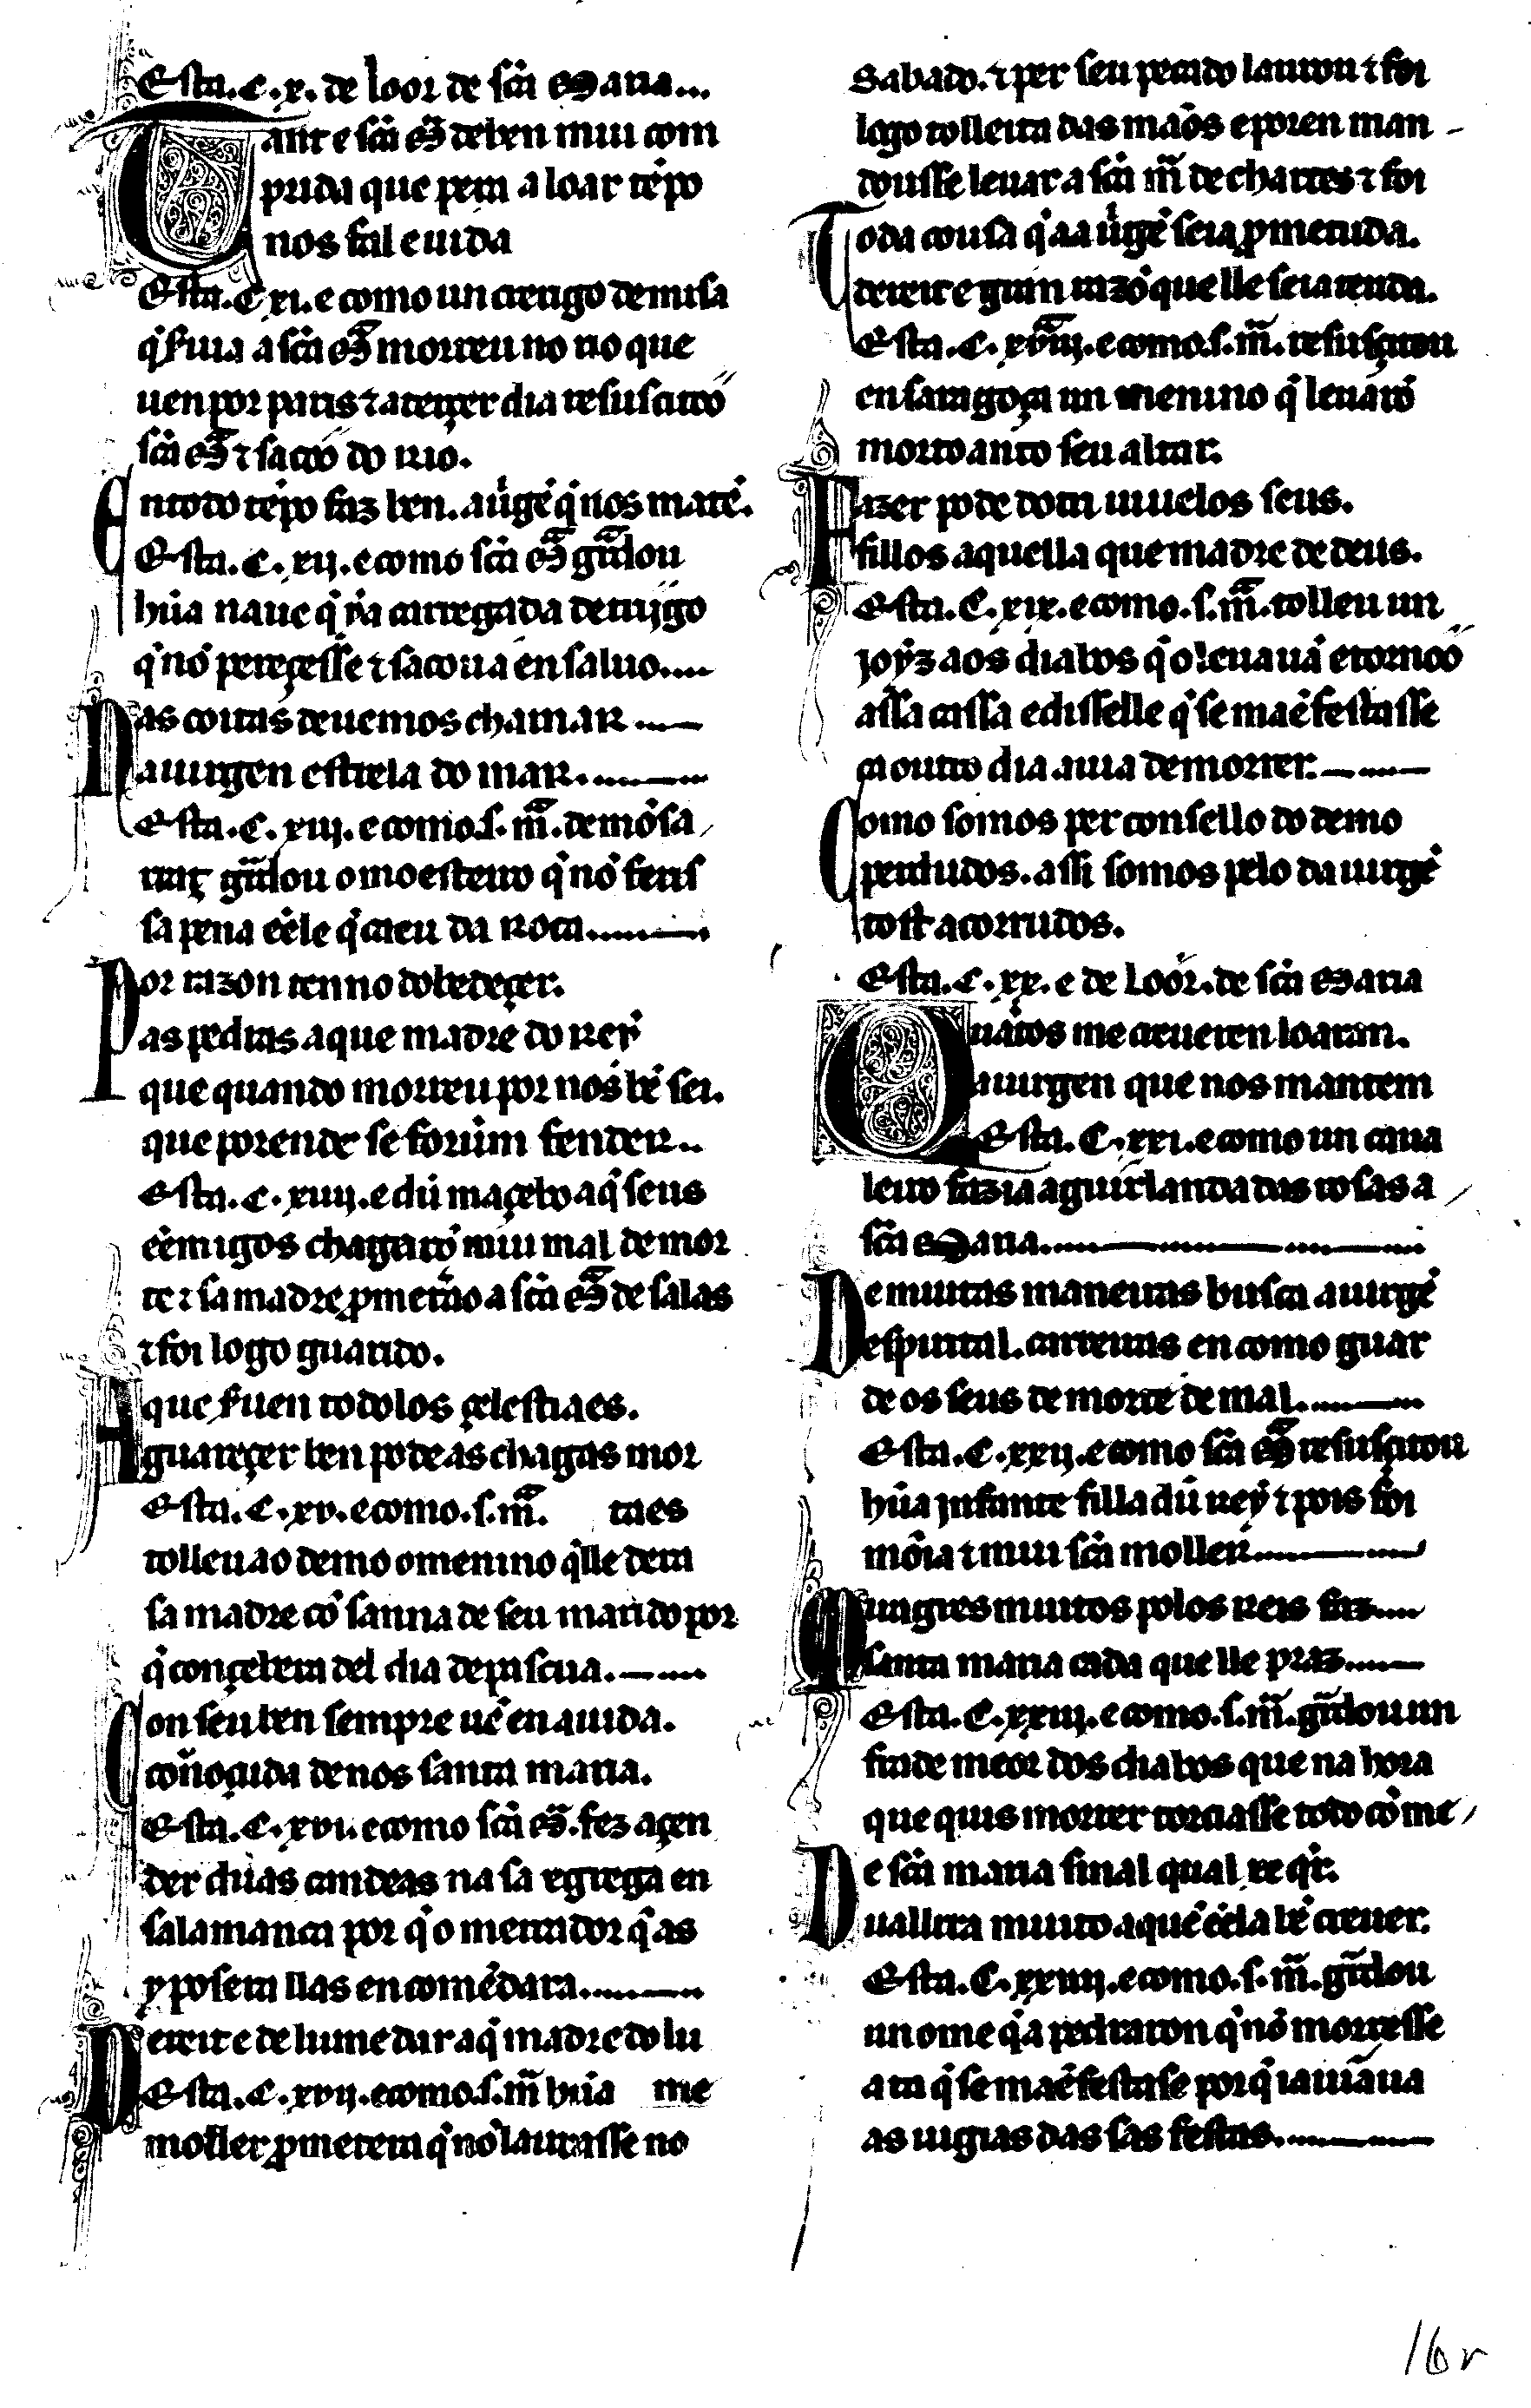 Esta .C.x. de loor de scã Maria...
Tant e scã M̃ de ben mui com
prida que pera a loar tẽpo
nos fal e uida
Esta .C.xi. e como un crerigo de missa
q̇ s̃uia a scã M̃ morreu no rio que
uen por paris ⁊ a terçer dia resuscitoo
scã M̃ ⁊ sacoo do rio.
En todo tẽpo faz ben. a uirgẽ q̇ nos mantẽ.
Esta .C.xij. e como scã M̃ guardou
hũa naue q̇ ýa carregada de trijgo
q̇ nõ pereçesse ⁊ sacoua en saluo....
Nas coitas deuemos chamar.....
a uirgen estrela do mar.........
Esta .C.xiij. e como .s. m̃. de mõsa
rraz guardou o moesteiro q̇ nõ feris
sa pena ẽ ele q̇ caeu da roca........
Por razon tenno dobedeçer.
as pedras a que madre do rey
que quando morreu por nos bẽ sei.
que porende se foram fender..
Esta .C.xiiij. e dũ mançebo a q̇ seus
ẽemigos chagarõ mui mal de mor
te ⁊ sa madre prometeo a scã M̃ de salas
⁊ foi logo guarido.
A que s̃uen todolos çelestiaes.
guareçer ben pode as chagas mor
Esta .C.xv. e como .s. m̃. taes
tolleu ao demo o menino q̇ lle dera
sa madre cõ sanna de seu marido por
q̇ conçebera del dia de pascua.-....
Con seu ben sempre uẽ en aiuda.
connoçuda de nos santa maria.
Esta .C.xvi. e como scã M̃. fez açen
der dũas candeas na sa egrega en
salamanca por q̇ o mercador q̇ as
y posera llas en comẽdara........
Dereit e de lume dar a q̇ madre do lu
Esta .C.xvij. e como .s. m̃ hũa me
moller prometera q̇ nõ laurasse no
sabado. ⁊ per seu pecado laurou ⁊ foi
logo tolleita das mãos e poren man-
dousse leuar a scã m̃ de chartes ⁊ foi
Toda cousa q̇ aa uirgẽ seia prometuda.
dereit e guan razõ que lle seia tenda.
Esta .C.xviij. e como .s. m̃. resusçitou
en saragoça un menino q̇ leuarõ
morto anto seu altar.
Fazer pode dout iuuelos seus.
fillos aquella que madre de deus.
Esta .C.xix. e como .s. m̃. tolleu un
joyz aos diabos q̇ o leuauã e tornoo
assa cassa e disselle q̇ se maẽfestasse
ca outro dia auia de morrer.-...-
Como somos per consello do demo
perdudos. assi somos pelo da uirgẽ
tost acorrudos.
Esta .C.xx. e de Loor. de scã Maria
Quãtos me creueren loaran.
a uirgen que nos mantem
Esta .C.xxi. e como un caua
leiro fazia a guirlanda das rosas a
scã Maria................
De muitas maneiras busca a uirgẽ
espirital. carreiras en como guar
de os seus de morte de mal........
Esta .C.xxij. e como scã M̃ resusçitou
hũa jnfante filla dũ rey ⁊ pois foi
mõia ⁊ mui scã moller.........
Miragres muitos polos reis faz....
santa maria cada que lle praz.....
Esta .C.xxiij. e como .s. m̃. guardou un
frade meor dos diabos que na hora
que quis morrer torciasse todo cõ me
De scã maria sinal qual xe q̇r.
ual lira muito a quẽ ẽ ela bẽ creuer.
Esta .C.xxiiij. e como .s. m̃. guardou
un ome q̇ a pedraron q̇ nõ morresse
ata q̇ se maẽfestase porq̇ iaiũaua
as uigias das sas festas.........
16r